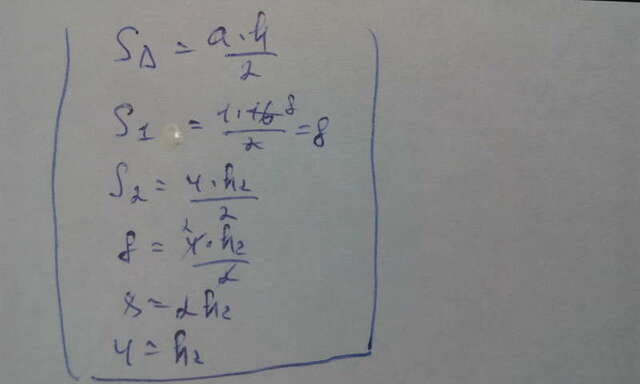 S△ = a·h/2
S1 = 1·16 8/2 = 8
S2 = 4·h2/2
8 = 2 4·h2/2
8 = 2h2
4 = h2